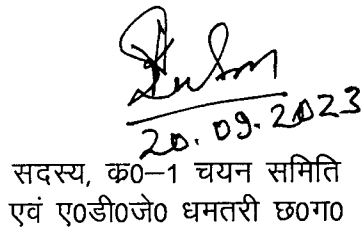 20.09.2023
सदस्य, क0–1 चयन समिति
एवं ए0डी0जे0 धमतरी छ0ग0